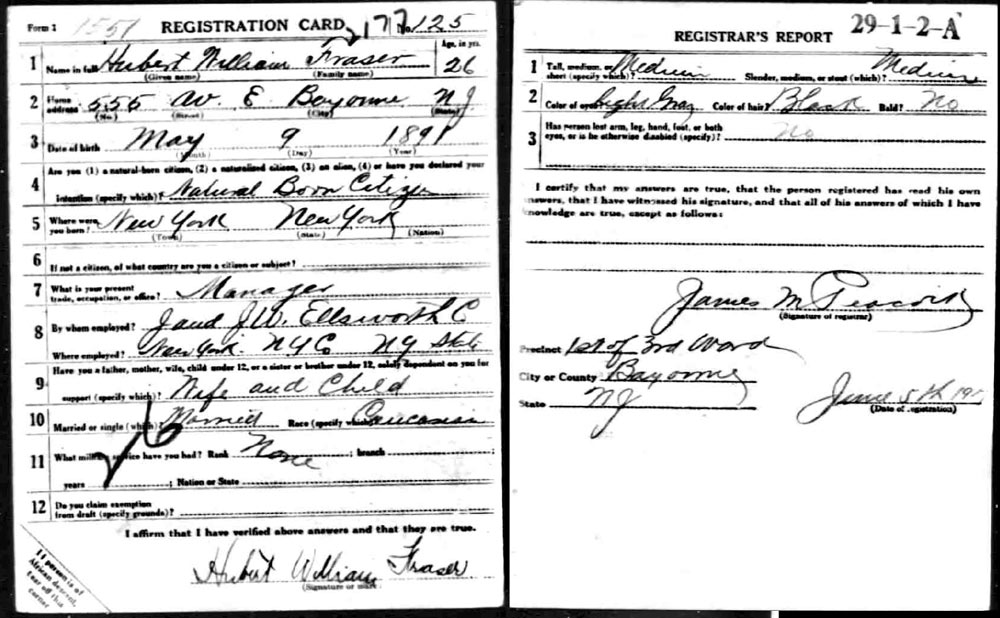 Form 1 1551 REGISTRATION CARD No. 125
1 Name in full Hubert William Fraser Age, in yrs. 26
(Given name) (Family name)
2 Home address 555 Av. E Bayonne NJ
(No.) (Street) (City) (State)
3 Date of birth May 9 1891
(Month) (Day) (Year)
Are you (1) a natural-born citizen, (2) a naturalized citizen, (3) an alien, (4) or have you declared your
4 intention (specify which)? Natural Born Citizen
5 Where were you born? New York New York
(Town) (State) (Nation)
6 If not a citizen, of what country are you a citizen or subject?
7 What is your present trade, occupation, or office? Manager
8 By whom employed? J and J.W. Ellsworth C
Where employed? New York. NYC NY State
Have you a father, mother, wife, child under 12, or a sister or brother under 12, solely dependent on you for
9 support (specify which)? Wife and Child
10 Married or single (which)? Married Race (specify which)? Caucasian
11 What military service have you had? Rank None ; branch
years ; Nation or State
12 Do you claim exemption from draft (specify grounds)?
I affirm that I have verified above answers and that they are true.
Hubert William Fraser
(Signature or mark)
If person is of
African descent,
tear off this
corner
REGISTRAR'S REPORT 29-1-2-A
1 Tall, medium, or short (specify which)? Medium Slender, medium, or stout (which)? Medium
2 Color of eyes? Light Gray Color of hair? Black Bald? No
3 Has person lost arm, leg, hand, foot, or both eyes, or is he otherwise disabled (specify)? No
I certify that my answers are true, that the person registered has read his own
answers, that I have witnessed his signature, and that all of his answers of which I have
knowledge are true, except as follows:
James M Peacock
(Signature of registrar)
Precinct 1st of 3rd Ward
City or County Bayonne
State NJ
June 5th 191
(Date of registration)